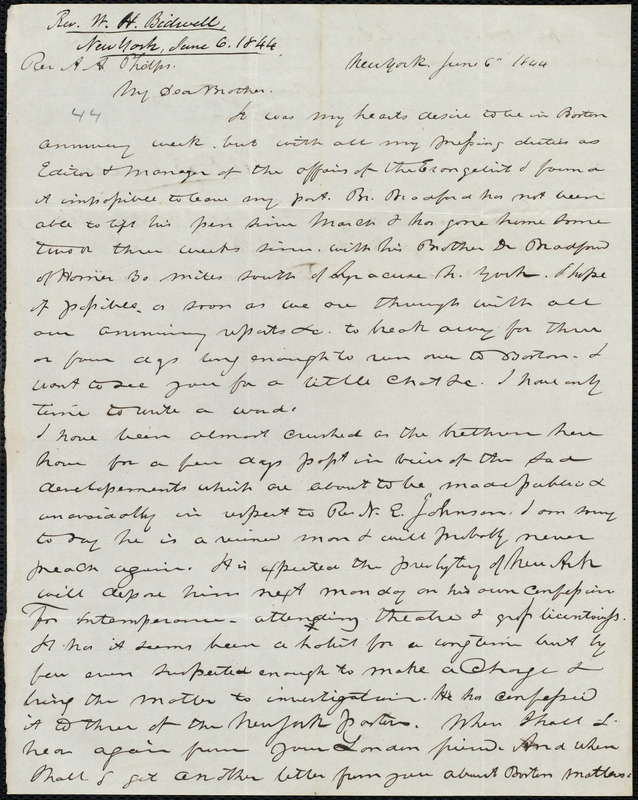 Rev. W. H. Bidwell,
New York, June 6. 1844.
Rev A A Phelps. New York. June 6th 1844
My Dear Brother.
44 It was my hearts desire to be in Boston
anniversary week. but with all my pressing duties as
Editor & Manager of the affairs of the Evangelist I found
it impossible to leave my post. Br. Bradford has not been
able to lift his pen since March & has gone home some
two or three weeks since. with his Brother Dr Bradford
of Homer 30 miles south of Syracuse N. York. I hope
if possible. as soon as we are through with all
our anniversary reports &c. to break away for three
or four days long enough to run over to Boston. I
want to see you for a little chat &c. I have only
time to write a word.
I have been almost crushed as the brethren here
have for a few days past in view of the sad
developements which are about to be made public &
unavoidably in respect to Rev N. E. Johnson. I am sorry
to say he is a ruined man & will probably never
preach again. It is expected the presbytery of New Ark
will depose him next monday on his own confession
For Intemperance - attending theatre & gross licentiousness.
It has it seems been a habit for a long time but by
few even suspected enough to make a Charge &
bring the matter to investigation. He has confessed
it to three of the New York pastors. When shall I
hear again from your London friend. And when
shall I get another letter from you about Boston matters.